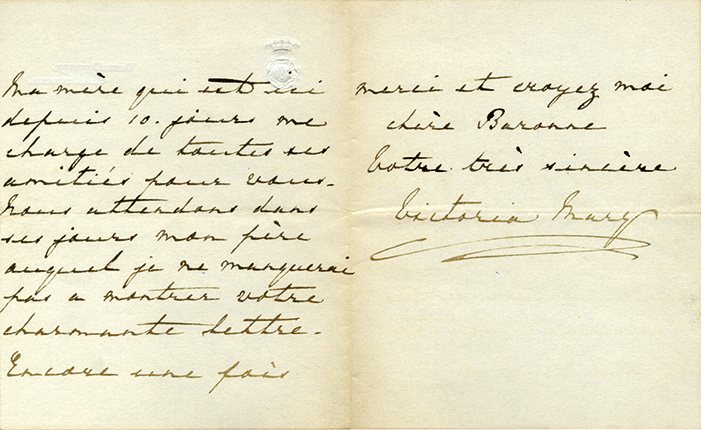 Ma mère qui est ici
depuis 10. jours me
charge de toutes ses
amitiés pour vous.
Nous attendons dans
ses jours mon père
auquel je ne manquerai
pas a montrer votre
charmante lettre.
Encore une fois
merci et croyez moi
chère Baronne
Votre très sincère
Victoria Mary